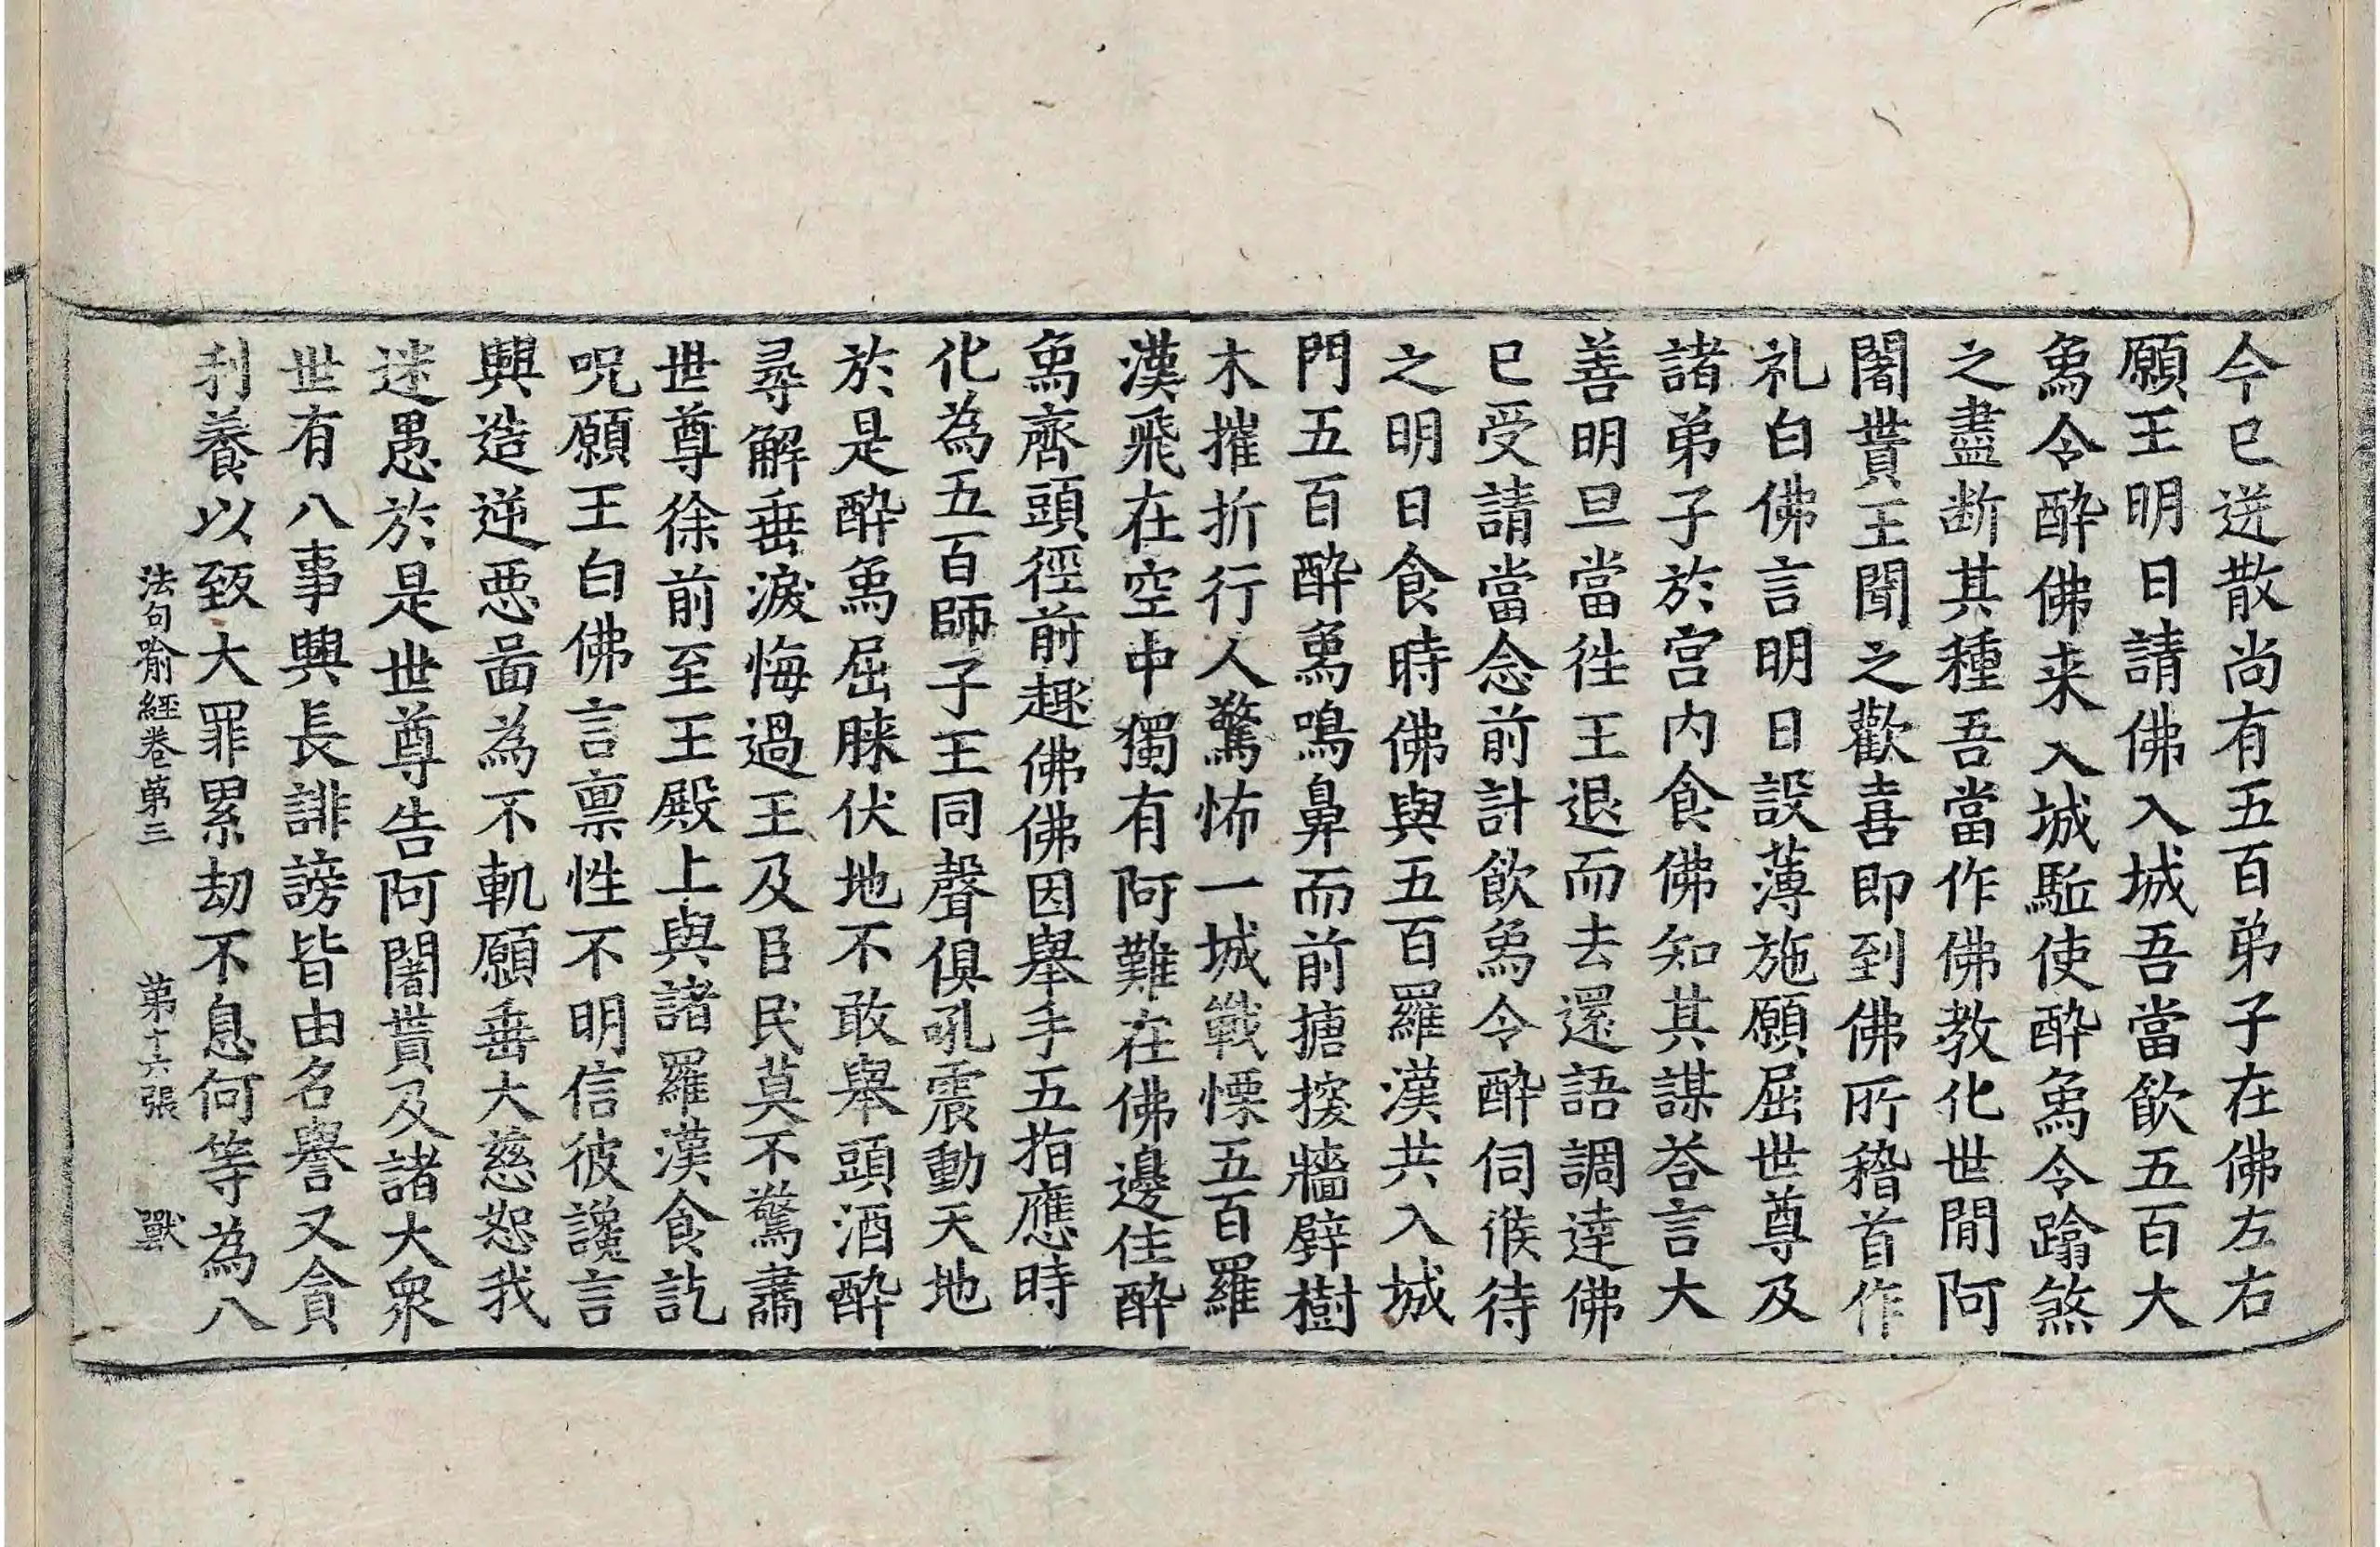 今已迸散尚有五百弟子在佛左右
願王明日請佛入城吾當飲五百大
為令醉佛来入城駈使醉為令蹹煞
之盡断其種吾當作佛教化世間阿
闍貰王聞之歡喜即到佛所稽首作
礼白佛言明日設薄施願屈世尊及
諸弟子於宮内食佛知其謀荅言大
善明旦當徃王退而去還語調達佛
已受請當念前計飲為令醉伺候待
之明日食時佛與五百羅漢共入城
門五百醉為鳴鼻而前搪揬牆壁樹
木摧折行人驚怖一城戰慄五百羅
漢飛在空中獨有阿難在佛邊住醉
為齊頭徑前趣佛佛因舉手五指應時
化為五百師子王同聲俱吼震動天地
於是醉為屈膝伏地不敢舉頭酒醉
尋解垂淚悔過王及臣民莫不驚肅
世尊徐前至王殿上與諸羅漢食訖
呪願王白佛言禀性不明信彼讒言
興造逆惡啚為不軌願垂大慈恕我
迷愚於是世尊告阿闍貰及諸大衆
世有八事興長誹謗皆由名譽又貪
利養以致大罪累劫不息何等為八
法句喻經卷第三 第十六張 獸